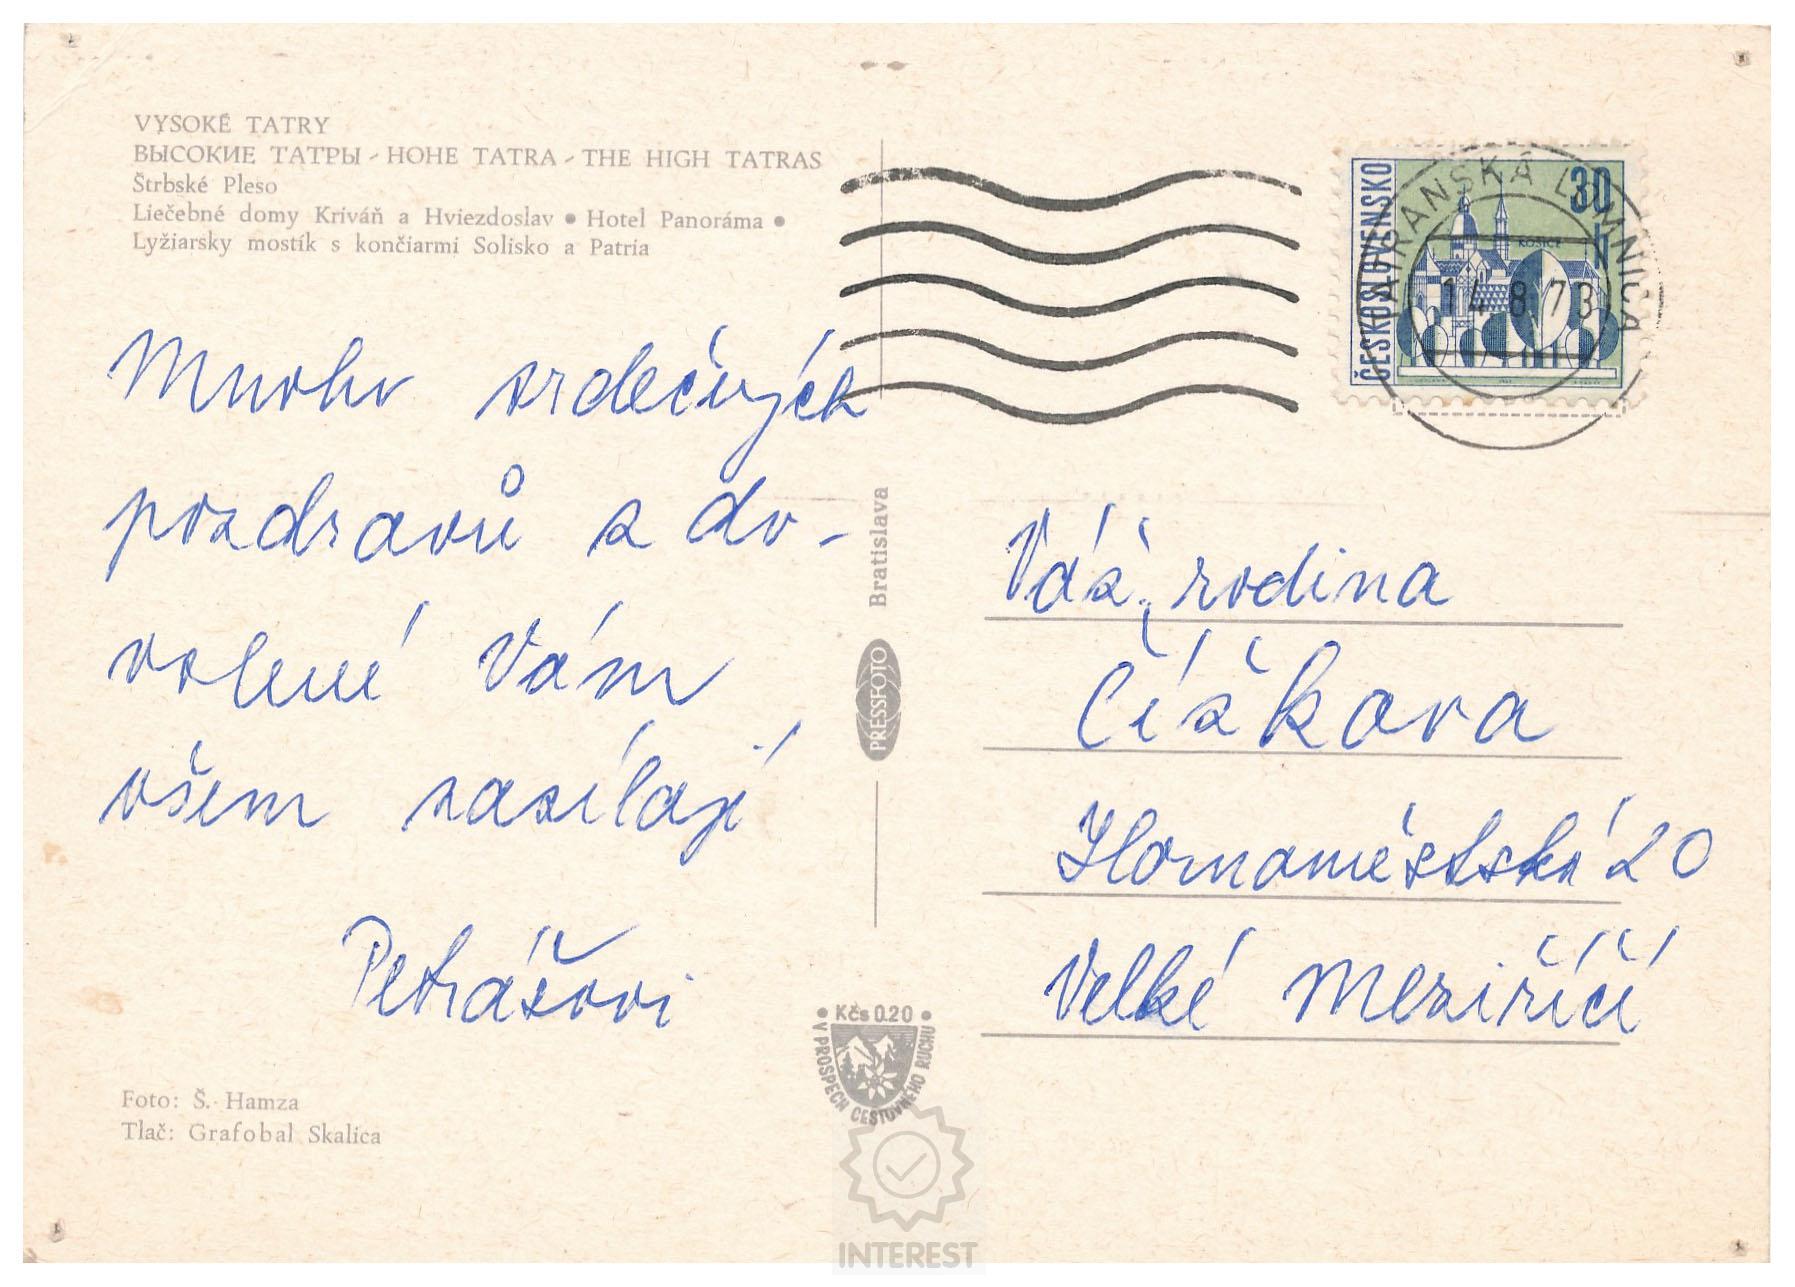 VYSOKÉ TATRY
ВЫСОКИЕ ТАТРЫ - HOHE TATRA - THE HIGH TATRAS
Štrbské Pleso
Liečebné domy Kriváň a Hviezdoslav • Hotel Panoráma •
Lyžiarsky mostík s končiarmi Solisko a Patria
ČESKOSLOVENSKO
30
h
KOŠICE
TATRANSKÁ LOMNICA
14.8.73
Mnoho srdečných
pozdravů z do-
volené Vám
všem zasílají
Petrášovi
Bratislava
PRESSFOTO
Váž. rodina
Číškova
Hornoměstská 20
Velké Meziříčí
• Kčs 0.20 •
V PROSPĚCH CESTOVNÉHO RUCHU
Foto: Š. Hamza
Tlač: Grafobal Skalica
INTEREST